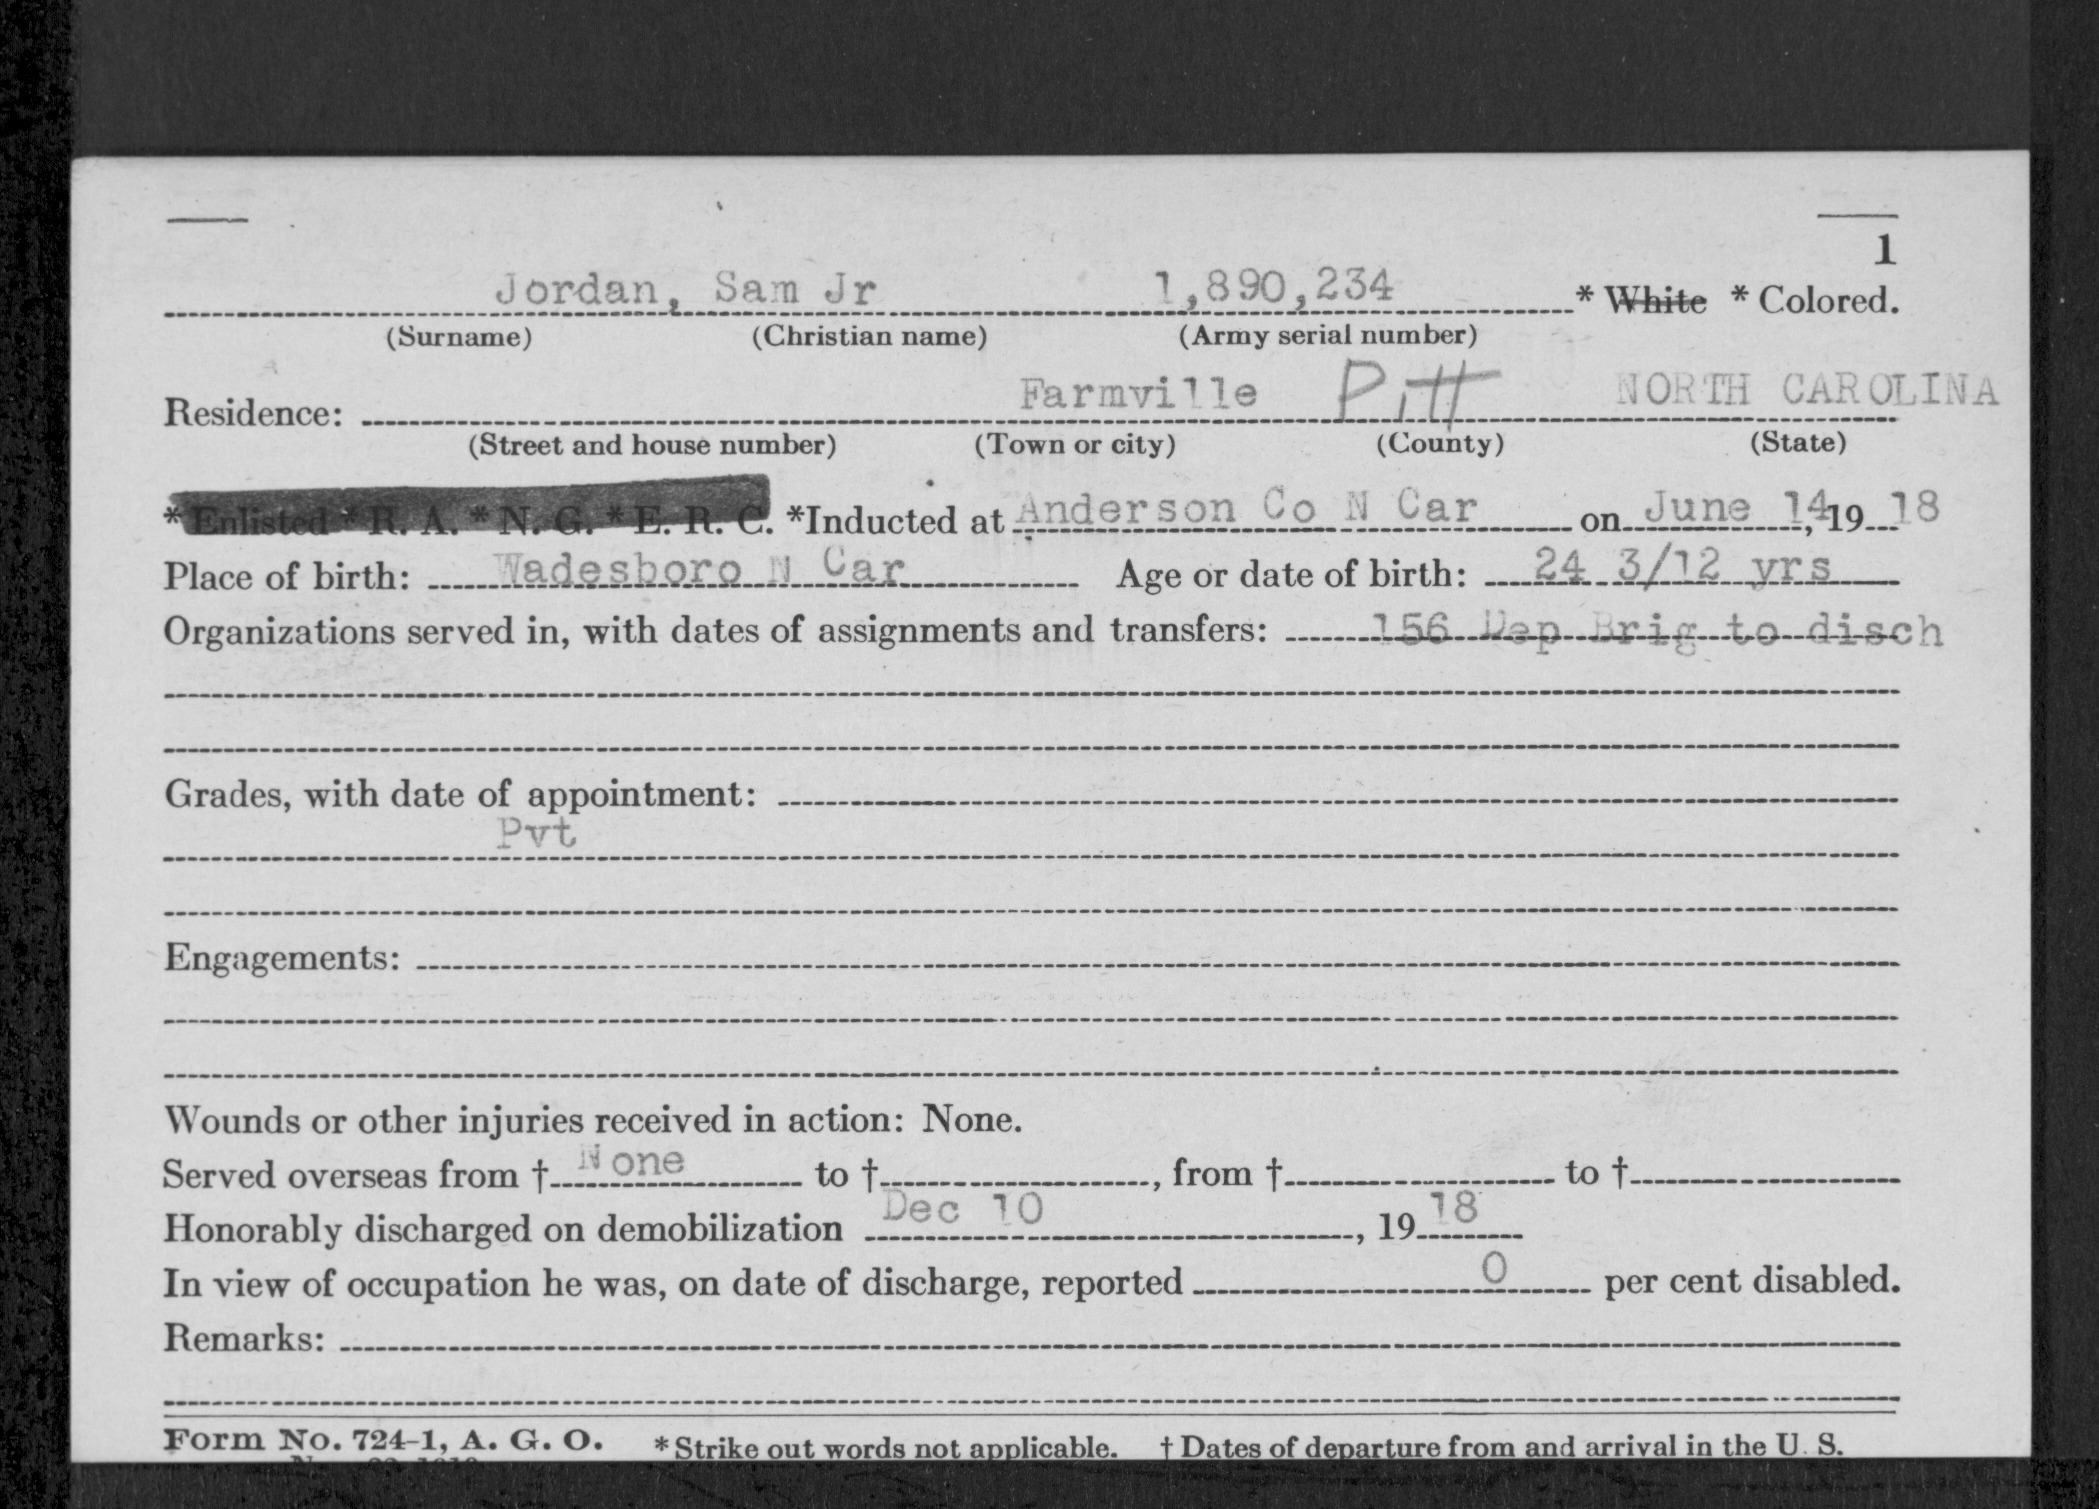 1
Jordan, Sam Jr 1,890,234 * White * Colored.
(Surname) (Christian name) (Army serial number)
Residence: Farmville Pitt NORTH CAROLINA
(Street and house number) (Town or city) (County) (State)
* Enlisted * R. A. * N. G. * E. R. C. *Inducted at Anderson Co N Car on June 14, 19 18
Place of birth: Wadesboro N Car Age or date of birth: 24 3/12 yrs
Organizations served in, with dates of assignments and transfers: 156 Dep Brig to disch
Grades, with date of appointment:
Pvt
Engagements:
Wounds or other injuries received in action: None.
Served overseas from † None to †, from † to †
Honorably discharged on demobilization Dec 10, 19 18
In view of occupation he was, on date of discharge, reported 0 per cent disabled.
Remarks:
Form No. 724-1, A. G. O. * Strike out words not applicable. † Dates of departure from and arrival in the U. S.